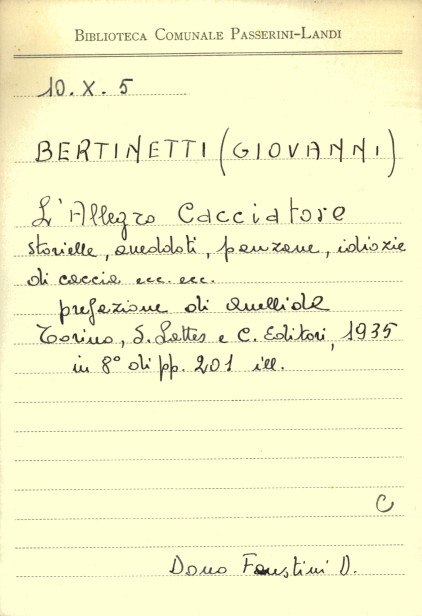 BIBLIOTECA COMUNALE PASSERINI-LANDI
10. X. 5
BERTINETTI (GIOVANNI)
L'Allegro Cacciatore
storielle, aneddoti, panzane, idiozie
di caccia ecc. ecc.
prefazione di
Torino, S. Lattes e C. Editori, 1935
in 8° di pp. 201 ill.
C
Dono Faustini D.